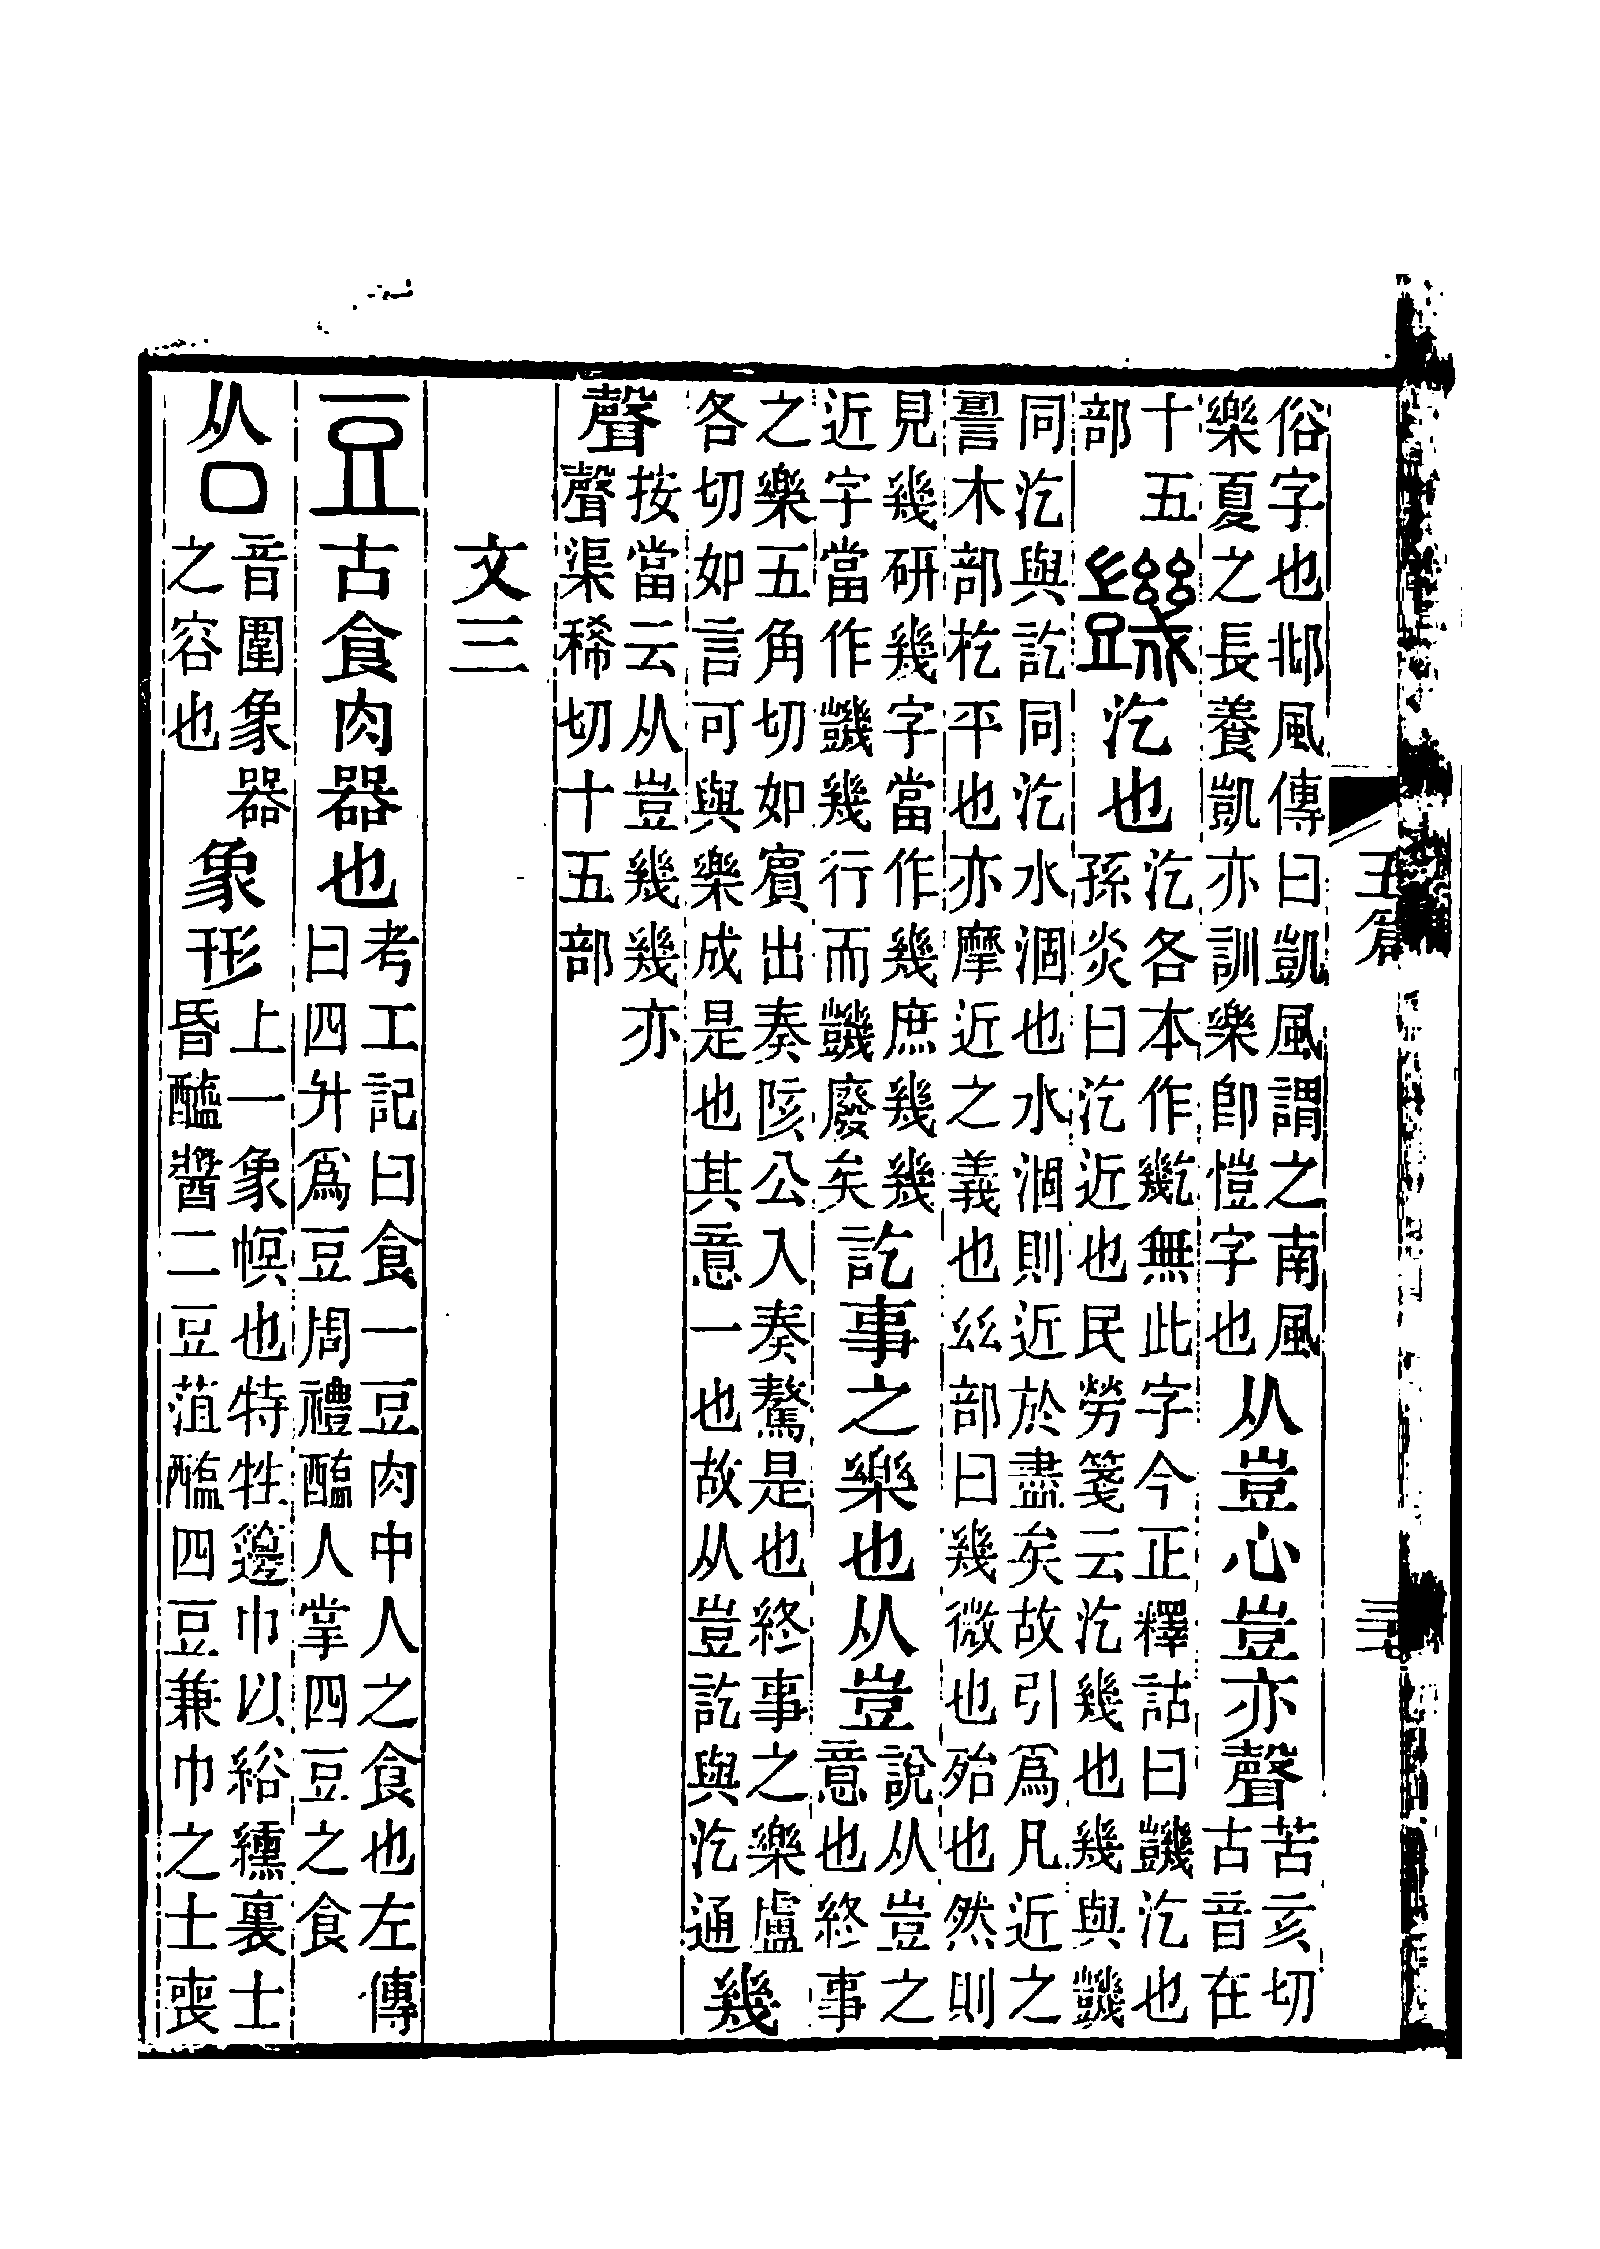 俗字也邶風傳曰凱風謂之南風
樂夏之長養凱亦訓樂卽愷字也
从豈心豈亦聲
苦亥切
古音在
十五
部
䜥汔也
汔各本作無此字今正釋詁曰䜥汔也
孫炎曰汔近也民勞箋云汔幾也幾與䜥
同汔與訖同汔水涸也水涸則近於盡矣故引爲凡近之
木部杚平也亦摩近之義也𢆶部曰幾微也殆也然則
見幾研幾字當作幾庶幾幾
近字當作䜥幾行而䜥廢矣
訖事之樂也从豈
說从豈之
意也終事
之樂五角切如賓出奏陔公入奏驁是也終事之樂盧
各切如言可與樂成是也其意一也故从豈訖與汔通
幾
聲
按當云从豈幾幾亦
聲渠稀切十五部
文三
豆古食肉器也
考工記曰食一豆肉中人之食也左傳
曰四升爲豆周禮醢人掌四豆之食
从口
音圍象器
之容也
象形
上一象幎也特牲籩巾以綌纁裏士
昏醯醬二豆菹醢四豆兼巾之士喪
五篇